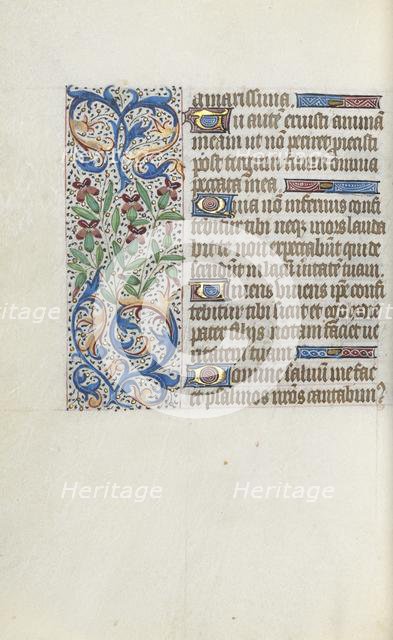 amarissima.
Tu autē eruisti animā
meam ut nō periret proiecisti
post tergum tuum omnia
peccata mea.
Quia nō infernus confi
tebitur tibi neqȝ mors lauda
bit te non expectabunt qui de
scendūt in lacū veritatem tuam.
Viuens viuens ip̄e confi
tebitur tibi sicut et ego hodie
pater filijs notam faciet ve
ritatem tuam.
Domine saluū me fac
et psalmos nr̄os cantabim⁹
Heritage
Heritage
Heritage
Heritage